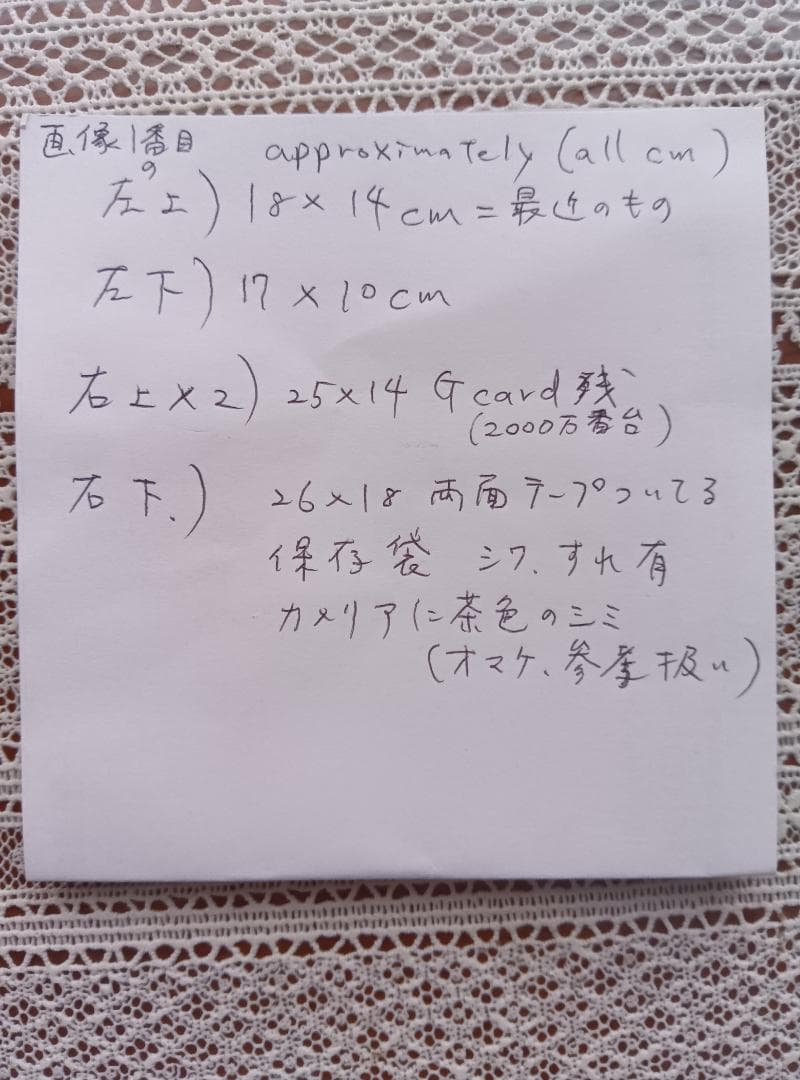 画像1番目の approximately (all cm)
左上) 18×14cm=最近のもの
左下) 17×10cm
右上×2) 25×14 Gcard残
(2000万番台)
右下.) 26×18 両面テープついてる
保存袋 シワ、すれ有
カメリアに茶色のシミ
(オマケ、参考扱い)